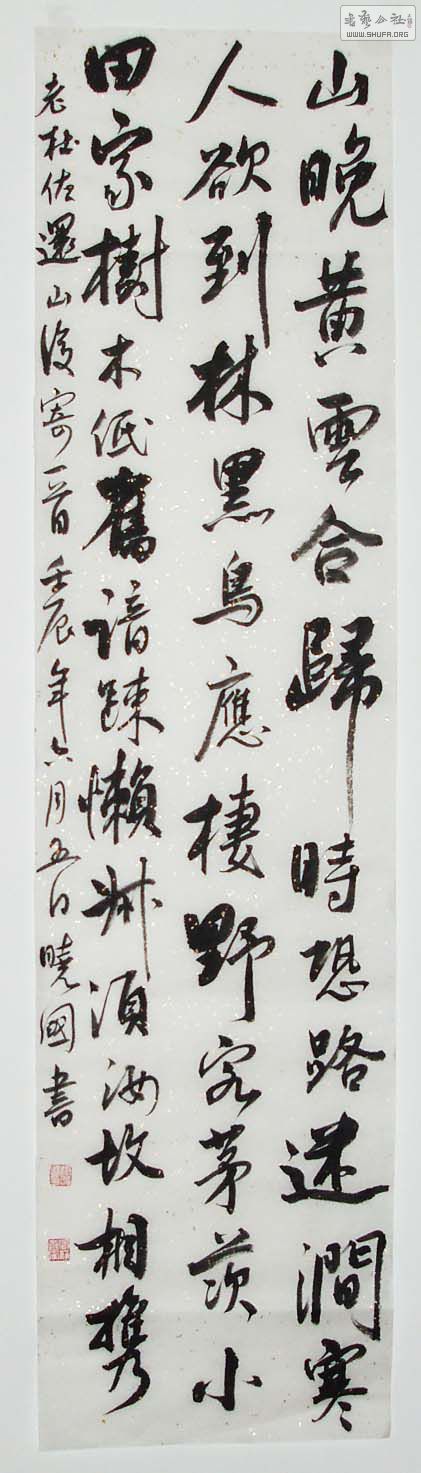 山晚黃雲合歸時恐路迷澗寒
人欲到林黑鳥應棲野客茅茨小
田家樹木低舊諳踈懶叔須汝故相携
老杜佐還山後寄一首壬辰年六月五日曉國書
書藝公社
WWW.SHUFA.ORG